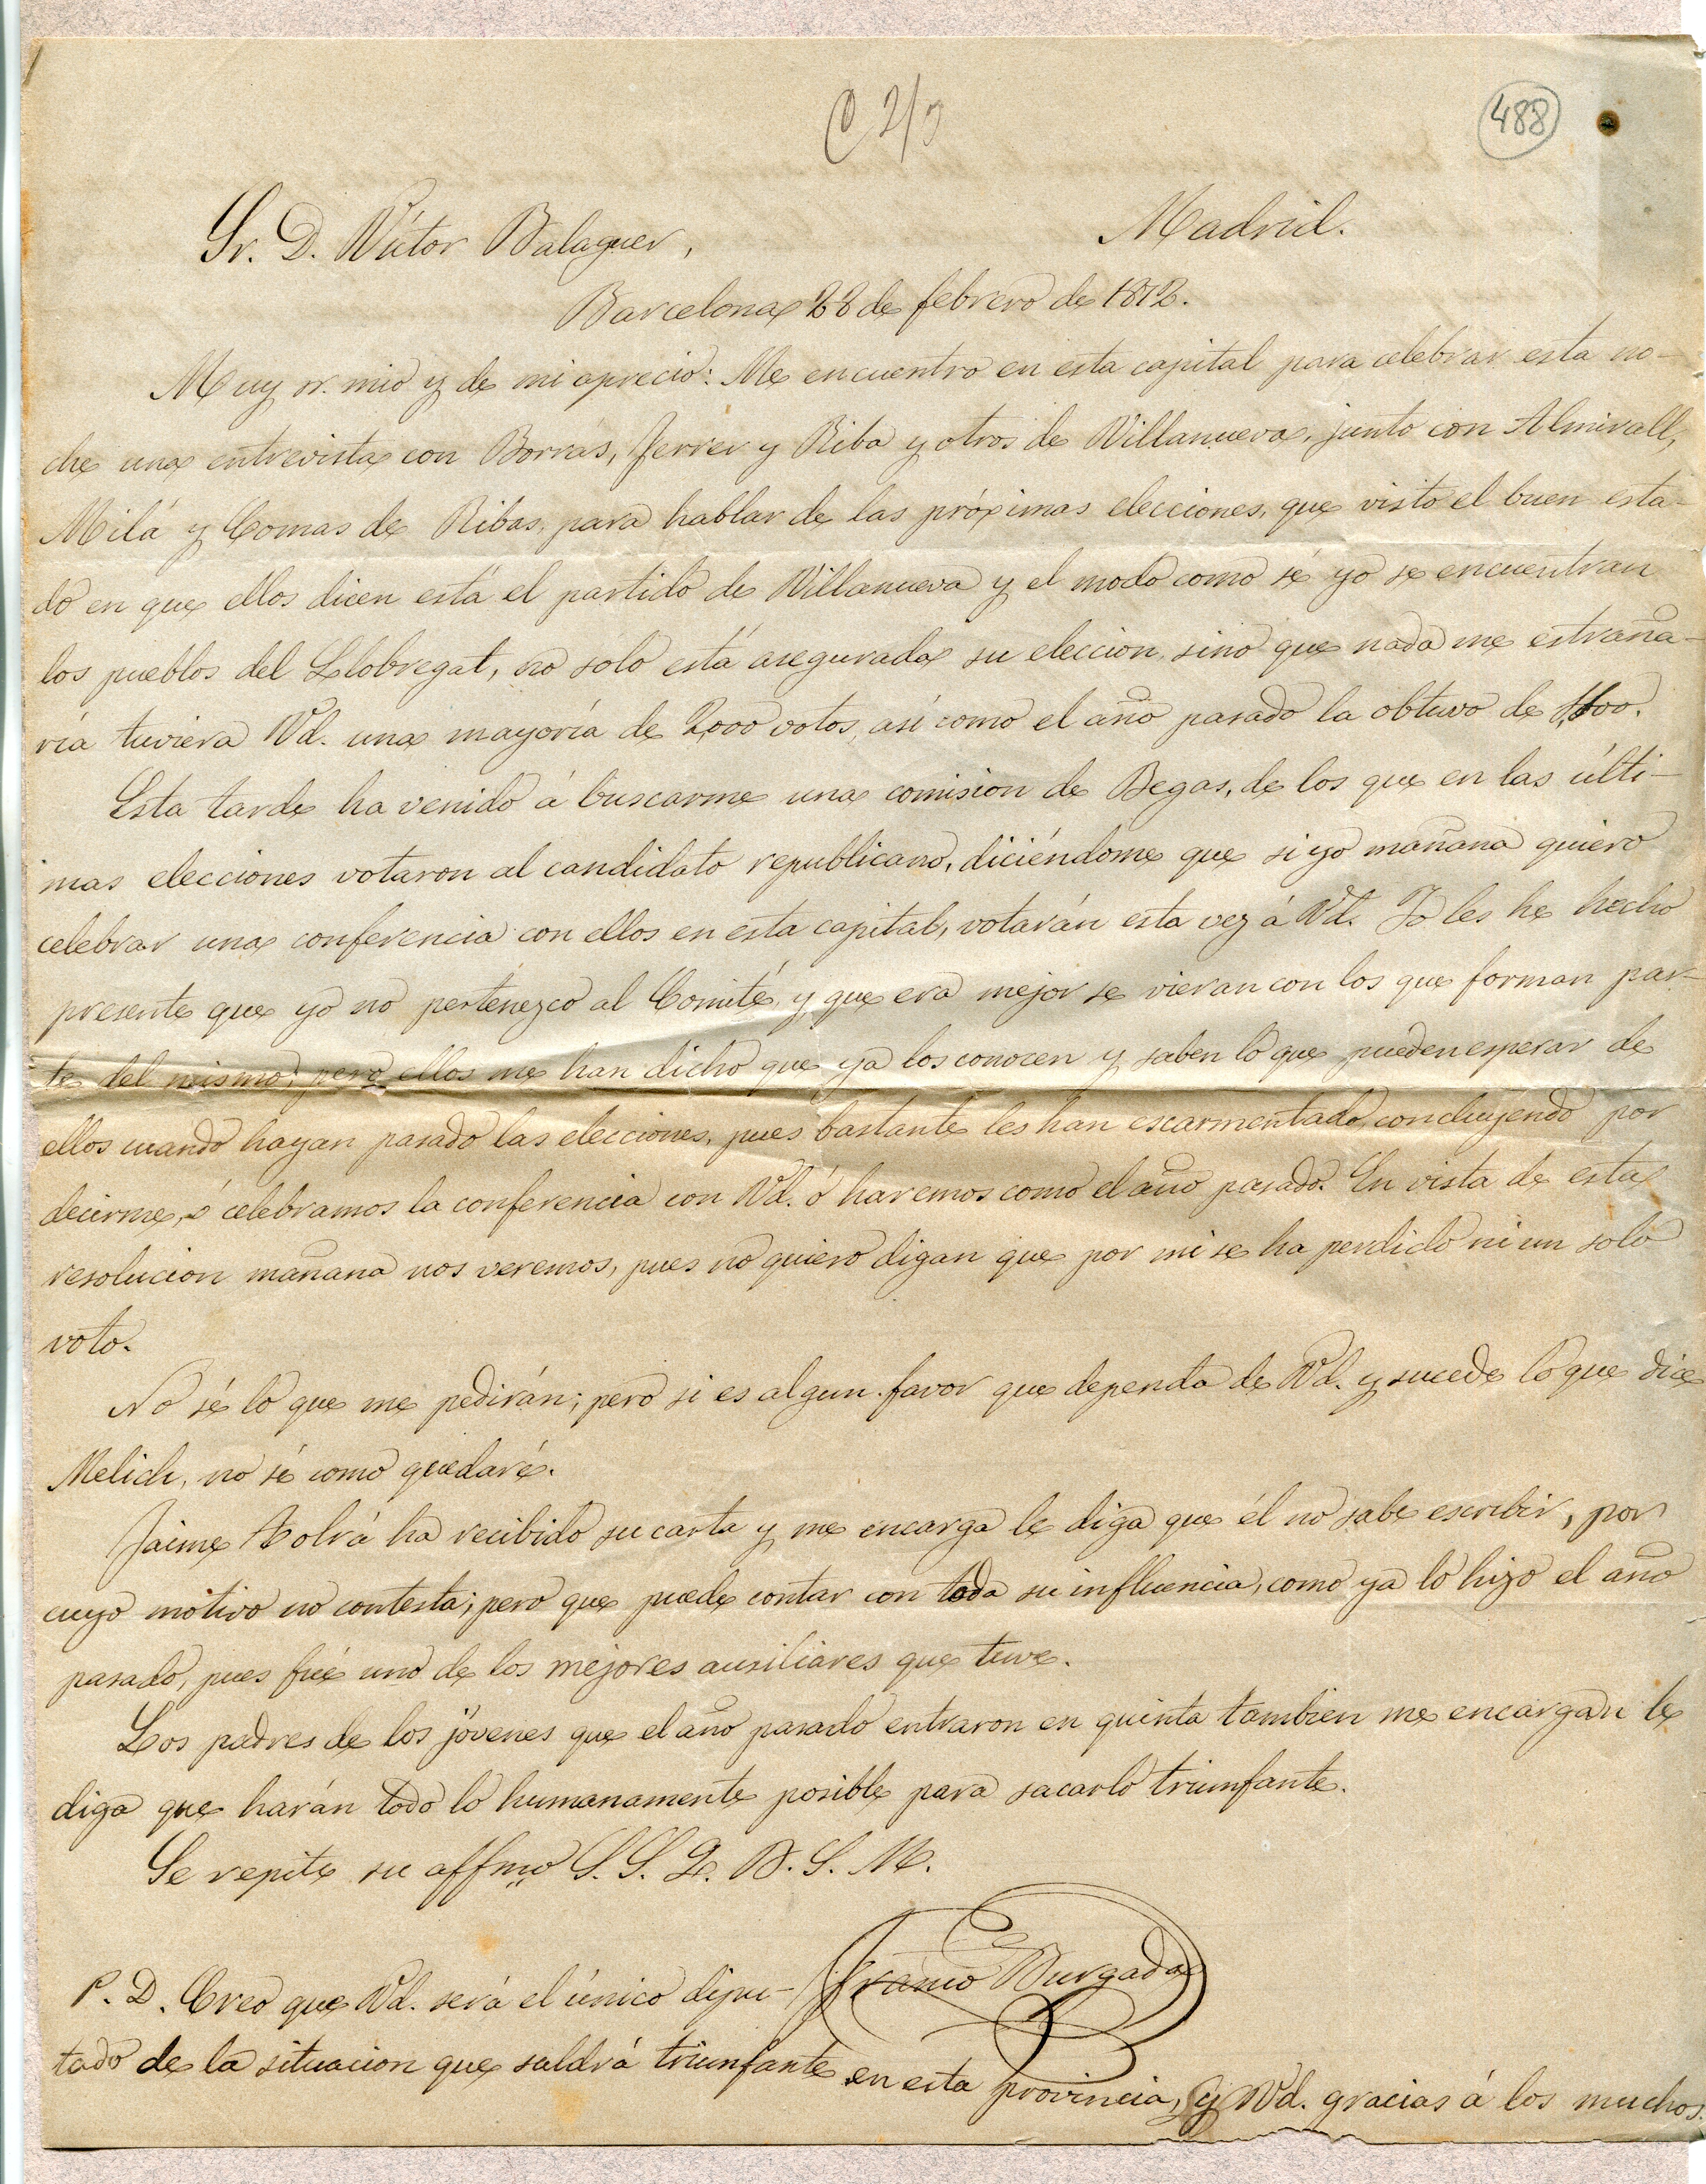 C 2/3
488
Sr. D. Víctor Balaguer,
Madrid.
Barcelona 28 de febrero de 1872.
Muy sr. mio y de mi aprecio: Me encuentro en esta capital para celebrar esta no-
che una entrevista con Borrás, Ferrer y Riba y otros de Villanueva, junto con Almirall,
Milá y Comas de Ribas, para hablar de las próximas elecciones, que visto el buen esta-
do en que ellos dicen está el partido de Villanueva y el modo como sé yo se encuentran
los pueblos del Llobregat, no solo está asegurada su eleccion, sino que nada me estraña-
ría tuviera Vd. una mayoría de 2,000 votos, así como el año pasado la obtuvo de
Esta tarde ha venido á buscarme una comision de Begas, de los que en las últi-
mas elecciones votaron al candidato republicano, diciéndome que si yo mañana quiero
celebrar una conferencia con ellos en esta capital, votarán esta vez á Vd. Yo les he hecho
presente que yo no pertenezco al Comité y que era mejor se vieran con los que forman par-
te del mismo; pero ellos me han dicho que ya los conocen y saben lo que pueden esperar de
ellos cuando hayan pasado las elecciones, pues bastante les han escarmentado, concluyendo por
decirme, ó celebramos la conferencia con Vd. ó haremos como el año pasado. En vista de esta
resolucion mañana nos veremos, pues no quiero digan que por mi se ha perdido ni un solo
voto.
No sé lo que me pedirán; pero si es algun favor que dependa de Vd. y sucede lo que dice
Melich, no sé como quedaré.
Jaime Bolvá ha recibido su carta y me encarga le diga que él no sabe escribir, por
cuyo motivo no contesta; pero que puede contar con toda su influencia, como ya lo hizo el año
pasado, pues fué uno de los mejores ausiliares que tuve.
Los padres de los jóvenes que el año pasado entraron en quinta tambien me encargan le
diga que harán todo lo humanamente posible para sacarlo triunfante.
Se repite su affmo S. S. Q. B. S. M.
Franco Burgada
P. D. Creo que Vd. será el único dipu-
tado de la situacion que saldrá triunfante en esta provincia, y Vd. gracias á los muchos